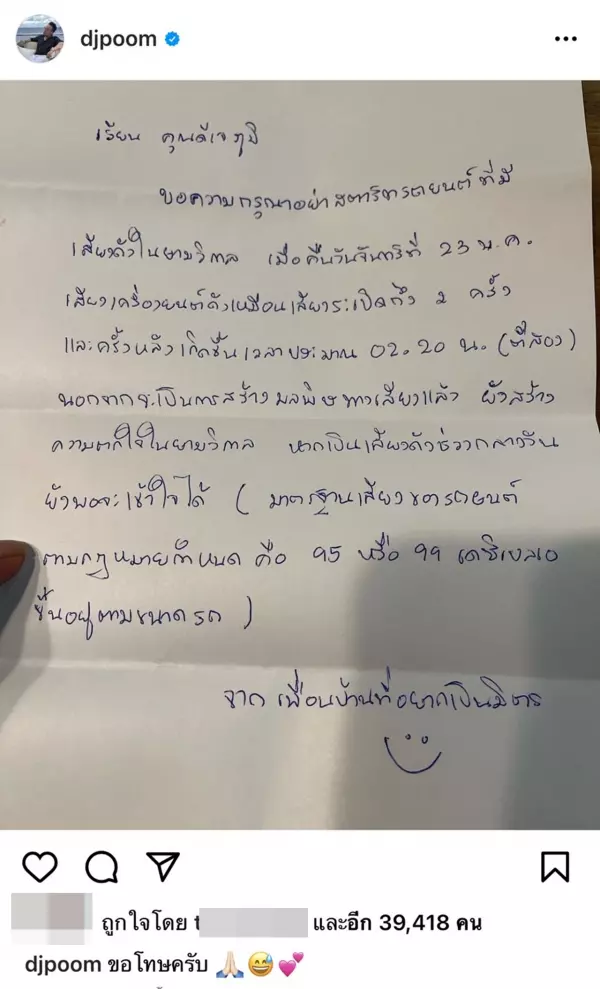 djpoom
เรียน คุณดีเจภูมิ
ขอความกรุณาอย่าสตาร์ทรถยนต์ที่มี
เสียงดังในยามวิกาล เมื่อคืนวันจันทร์ที่ 23 พ.ค.
เสียงเครื่องยนต์ดังเหมือนเสียงระเบิดถึง 2 ครั้ง
และครั้งหลังเกิดขึ้นเวลาประมาณ 02.20 น. (ตีสอง)
นอกจากจะเป็นการสร้างมลพิษทางเสียงแล้ว ยังสร้าง
ความตกใจในยามวิกาล หากเป็นเสียงดังช่วงกลางวัน
ยังพอจะเข้าใจได้ ( มาตรฐานเสียงของรถยนต์
ตามกฎหมายกำหนด คือ 95 หรือ 99 เดซิเบลเอ
ขึ้นอยู่ตามขนาดรถ )
จาก เพื่อนบ้านที่อยากเป็นมิตร
ถูกใจโดย t และอีก 39,418 คน
djpoom ขอโทษครับ 🙏🏻😅💕